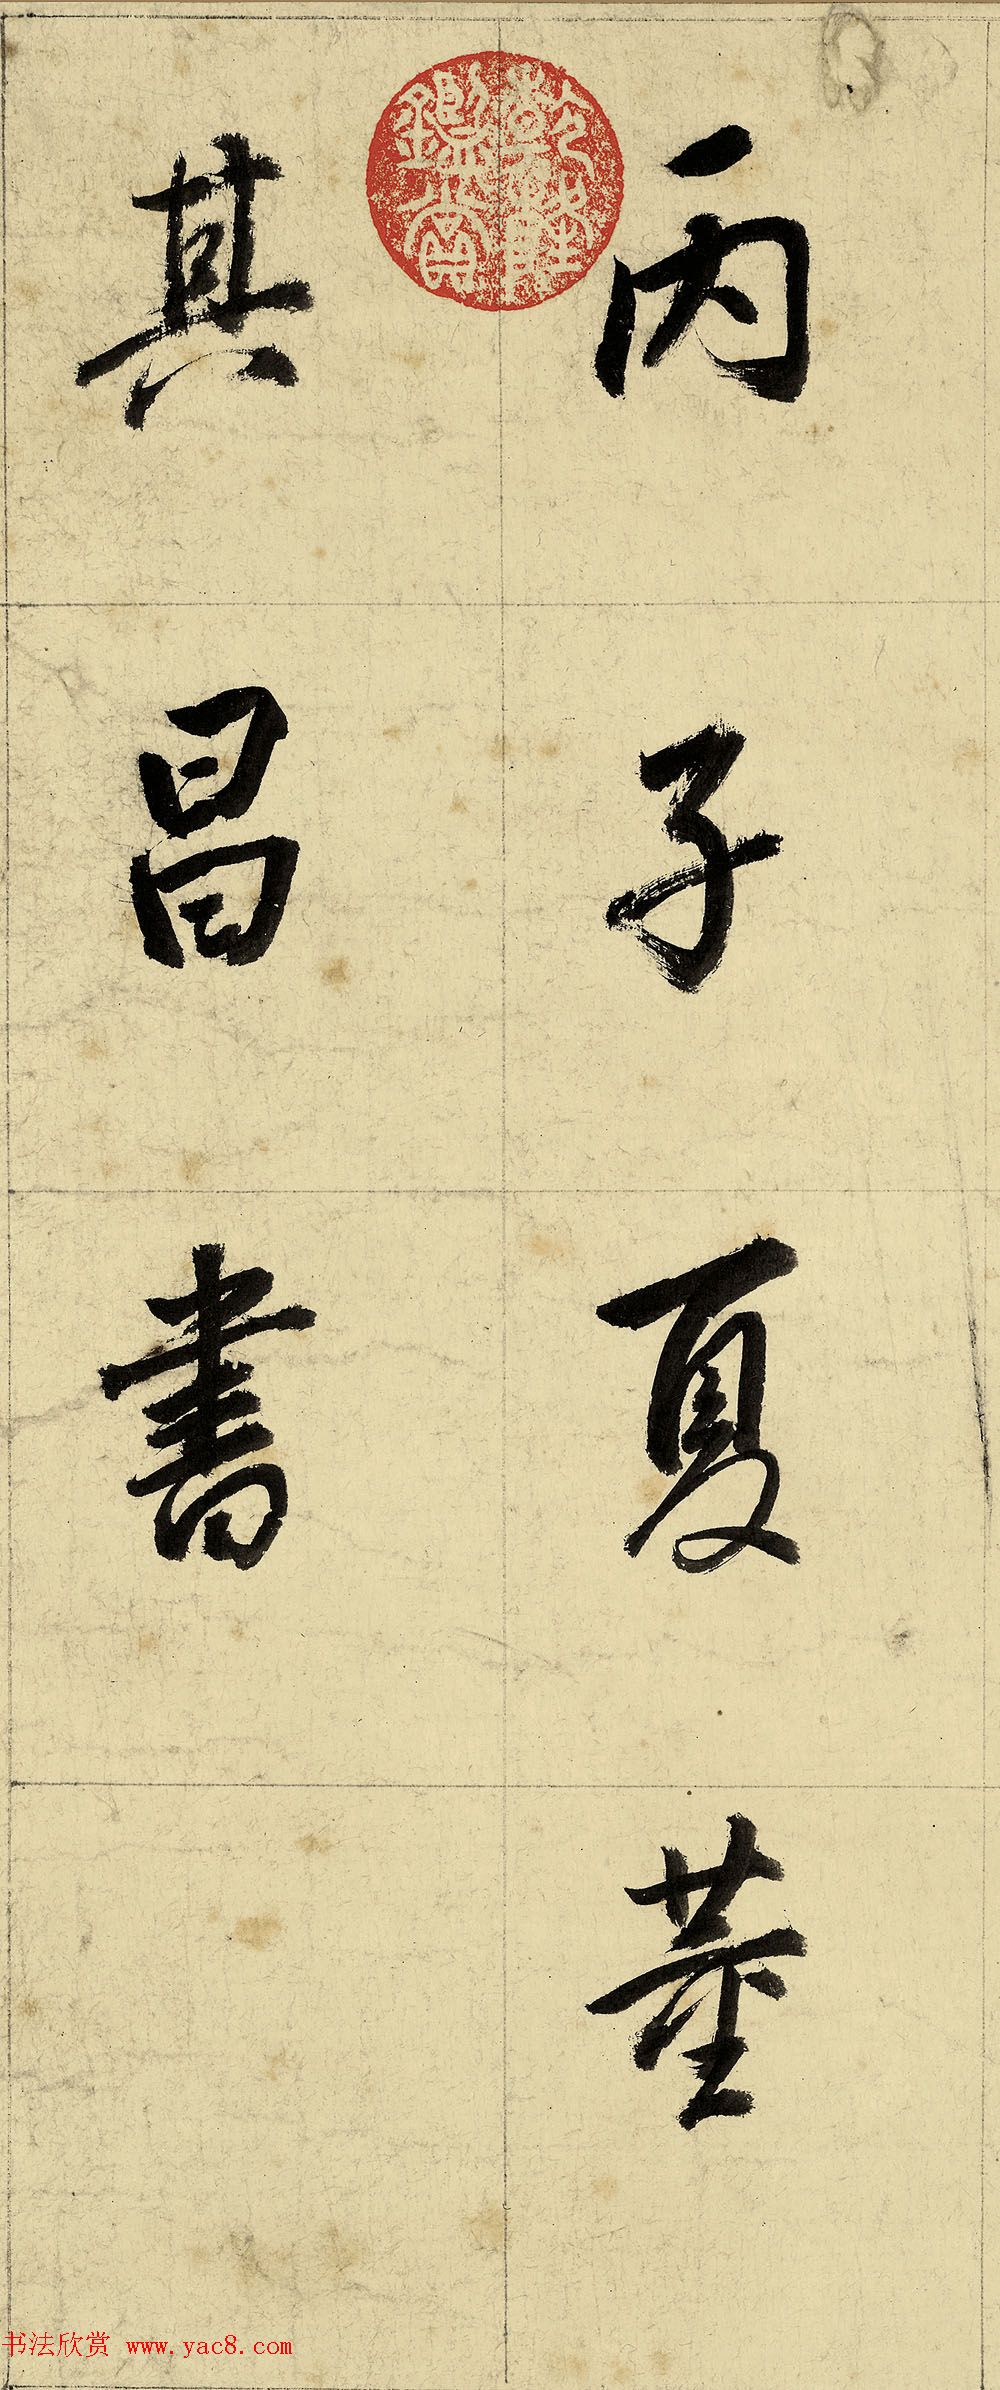 丙子夏董
其昌書
乾隆鑑賞
书法欣赏 www.yac8.com